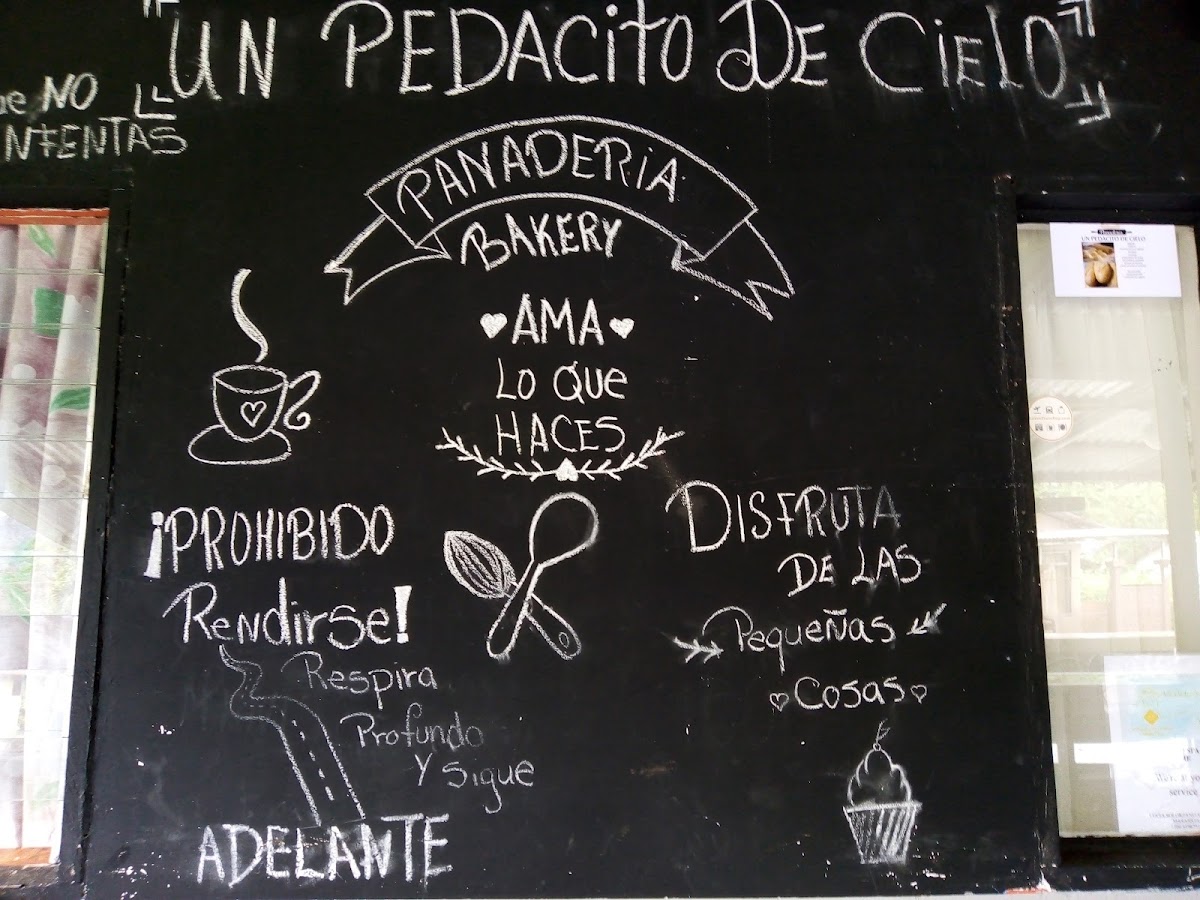 UN PEDACITO DE CIELO
NO
INTENTAS
PANADERIA
BAKERY
AMA
LO QUE
HACES
¡PROHIBIDO
Rendirse!
Respira
Profundo
Y sigue
ADELANTE
DISFRUTA
DE LAS
Pequeñas
Cosas
UN PEDACITO DE CIELO
service